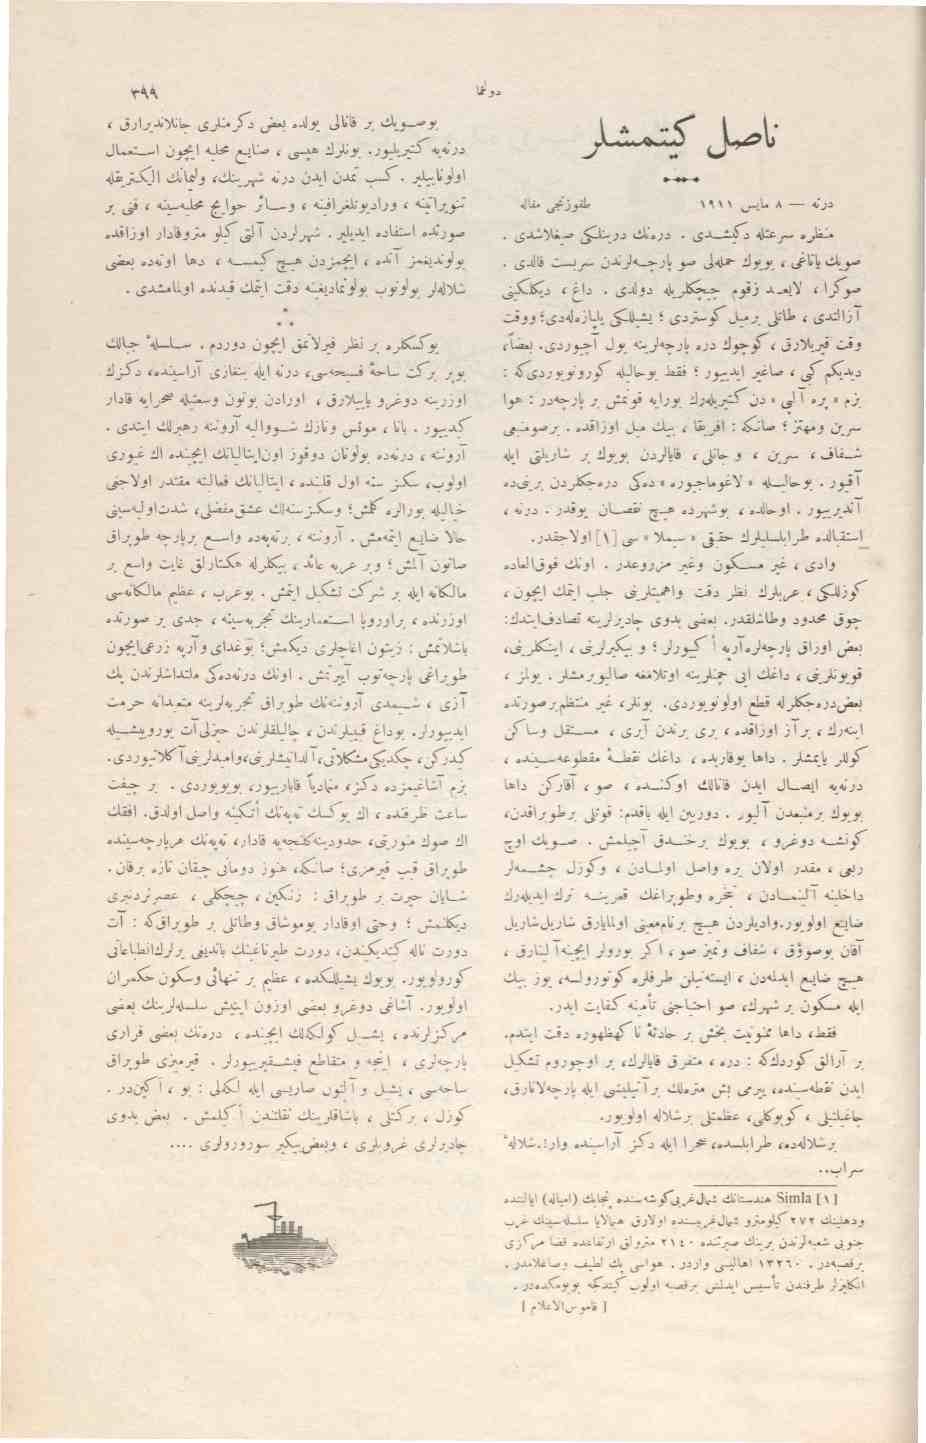 دوننما
٣٩٩
ناصل كيتمشلر
درنه — ٨ مايس ١٩١١ طقوزنجى مقاله
منظره سرعتله دكيشدى . درەنك درينلكى صيغلاشدى .
صويك ياتاغى ، بويوك حملەلى صو پارچەلرندن سربست قالدى .
صوكرا ، لايعد زقوم چيچكلريله دولدى . داغ ، ديكلكينى
آزالتدى ، طاتلى برميل كوستردى ؛ يشيللكى پيازەلەدى؛ ووقت
وقت قيريلارق ، كوچوك دره پارچەلرينه يول آچيوردى. بعضاً،
ديديكم كبى ، صاغير ايدييور ؛ فقط بوحاليله كورونويوردى كه :
بزم « پره آلپى » دن كتيريلەرك بورايه قونمش بر پارچەدر : هوا
سرين ومهتز ؛ صانكه : افريقا ، بيك ميل اوزاقده . برصومنبعى
شفاف ، سرين ، و جانلى ، قايالردن بويوك بر شاريلتى ايله
آقيور . بوحاليله « لاغوماجيوره » دەكى درەجكلردن برينى‌ده
آنديرييور . اوحالده ، بوشهرده هيچ نقصان يوقدر . درنه ،
استقبالده طرابلسليلرك حقيقى « سيملا » سى [١] اولاجقدر.
وادى ، غير مسكون وغير مزروعدر . اونك فوق‌العاده
كوزللكى ، عربلرك نظر دقت واهميتلرينى جلب ايتمك ايچون ،
چوق محدود وطاشلقدر. بعضى بدوى چاديرلرينه تصادف‌ايتدك:
بعض اوراق پارچەلره آرپه أكييورلر ؛ و بيكيرلرينى ، اينكلرينى،
قويونلرينى ، داغك ايى چمنلرينه اوتلامغه صاليويرمشلر . يولمز ،
بعض دره‌جكلرله قطع اولونويوردى. بونلر، غير منتظم برصورتده
اينەرك ، برآز اوزاقده ، برى برندن آيرى ، مستقل وساكن
كوللر ياپمشلر . داها يوقاريده ، داغك نقطهٔ مقطوعه‌سينده ،
درنه‌يه ايصال ايدن قانالك اوكنده ، صو ، آقاركن داها
بويوك برمنبعدن آليور . دوربين ايله باقدم: قوتلى برطوپراقدن،
كونشه دوغرو ، بويوك برخندق آچيلمش . صويك اوچ
ربعى ، مقدر اولان يره واصل اولمادن ، وكوزل چشمه‌لر
داخلينه آلينمادن ، تبخره وطوپراغك قعرينه ترك ايديلەرك
ضايع اولويور.واديلردن هيچ برنام‌معينى اولمايارق شاريل‌شاريل
آقان بوصوۋق ، شفاف وتميز صو ، اكر بورولر ايچينه آلينارق ،
هيچ ضايع ايدلەدن ، ايسته‌نيلن طرفلره كوتورولسه، يوز بيك
ايله مسكون بر شهرك، صو احتياجنى تأمينه كفايت ايدر.
فقط، داها ممنونيت بخش بر حادثهٔ ناكهظهوره دقت ايتدم.
بر آرالق كوردك‌كه : دره ، متفرق قايالرك، بر اوچوروم تشكيل
ايدن نقطه‌سنده، ييرمى بش متره‌لك بر آتيليشى ايله پارچەلانارق،
چاغيلتيلى ، كوپوكلى، عظمتلى برشلاله اولويور.
برشلاله‌ده، طرابلسده، صحرا ايله دكز آراسينده وار؛.شلالهٔ
سراب..
[١] Simla هندستانك شمال غربى‌كوشه‌سنده پنجابك (امباله) ايالتنده
ودهلينك ٢٧٢ كيلومترو شمال غربيسنده اولارق هيمالايا سلسله‌سينك غرب
جنوبى شعبه‌لرندن برينك صيرتنده ٢١٤٠ مترولق ارتفاعده قضا مركزى
برقصبه‌در . ١٣٢٦٠ اهاليسى واردر . هواسى پك لطيف وصاغلامدر .
انكليزلر طرفندن تأسيس ايدلمش برقصبه اولوب كيتدكجه بويومكده‌در .
[ قاموس الاعلام ]
بوصويك بر قانالى يولده بعض دكرمنلرى جانلانديرارق ،
درنه‌يه كتيريليور. بونلرك هپسى ، صنايع محليه ايچون استعمال
اولونابيلير . كسب تمدن ايدن درنه شهرينك، وليمانك اليكتريقله
تنويراتينه ، وراديوتلغرافينه ، وسائر حوايج محليه‌سينه ، فنى بر
صورتده استفاده ايديلير. شهرلردن آلتى كيلو مترو‌قادار اوزاقده
بولونديغمز آنده ، ايچمزدن هيچ كيمسه ، دها اوته‌ده بعضى
شلاله‌لر بولونوب بولونماديغينه دقت ايتمك قيدنده اولمامشدى .
* * *
يوكسكلره بر نظر فيرلاتمق ايچون دوردم . سلسلهٔ جبالك
بوير بركت ساحهٔ فسيحه‌سى، درنه ايله بنغازى آراسينده، دكزك
اوزرينه دوغرو ياييلارق ، اورادن بوتون وسعتيله صحرايه قادار
كيدييور . بانا ، مونس ونازك شووالیه آروننه رهبرلك ايتدى .
آروننه ، درنه‌ده بولونان دوقوز اون‌ايتاليانك ايچينده اك غيورى
اولوب، سكز سنه اول قلبنده، ايتاليانك فعاليته مقتدر اولاجغى
خياليله بورالره كلمش؛ وسكزسنه‌لك عشق‌مفضلى، شدت‌اوليه‌سينى
حالا ضايع ايتمه‌مش . آروننه ، برتپه‌ده واسع برپارچه طوپراق
صاتون آلمش؛ وبر عربه عائد، بيكلرله هكتارلق غايت واسع بر
مالكانه ايله بر شركت تشكيل ايتمش . بوعرب ، عظيم مالكانه‌سى
اوزرنده ، براوروپا استعمارينك تجربه‌سينه ، جدى بر صورتده
باشلاتمش : زيتون اغاچلرى ديكمش؛ بوغداى وآرپه زرعى‌ايچون
طوپراغى پارچه‌نوب آييرتمش . اونك درنه‌ده‌كى ملتداشلرندن پك
آزى ، شيمدى آروننه‌نك طوپراق تجربه‌لرينه متمدنانه حرمت
ايدييورلر. بوداغ قبيلرندن، چاليلقلرندن حيزلى‌آت يورويشيله
كيدركن، چكديكى‌مشكلاتى،آلدانيشلرينى،واميدلرينى‌آكلاتيوردى.
بزم آشاغيمزده دكز، متمادياً قاباريور، بويويوردى . بر چيفت
ساعت ظرفنده ، اك يوكسك تپه‌نك أتكينه واصل اولدق. افقك
اك صوك منوريتى، حدودينه‌كلنجه‌يه قادار، تپه‌نك هرپارچه‌سينده
طوپراق قيپ قيرمزى؛ صانكه، هنوز دومانى چيقان تازه برقان.
شايان حيرت بر طوپراق : زنكين ، چيچكلى ، عصرلردنبرى
ديكلنمش ؛ وحتى اوقادار يوموشاق وطاتلى بر طوپراق‌كه : آت
دورت ناله كيتديكندن، دورت طيرناغينك باندیغى يرلرك‌انطباعاتى
كورولويور. بويوك يشيللكده، عظيم بر تنهائى وسكون حكمران
اولويور. آشاغى دوغرو بعضى اوزون اينيش سلسله‌لرينك بعضى
مركزلرنده ، يشيل كولكه‌لك ايچنده ، دره‌نك بعضى فرارى
پارچه‌لرى ، اينجه و متقاطع فيشقيرييورلر . قيرميزى طوپراق
ساحه‌سى ، يشيل و آلتون صاريسى ايله لكه‌لى : بو ، أكين‌در .
كوزل ، بركتلى ، باشاقلرينك ثقلتندن أكيلمش . بعض بدوى
چاديرلرى غروبلرى ، وبعض‌بيكير سورورلرى ....